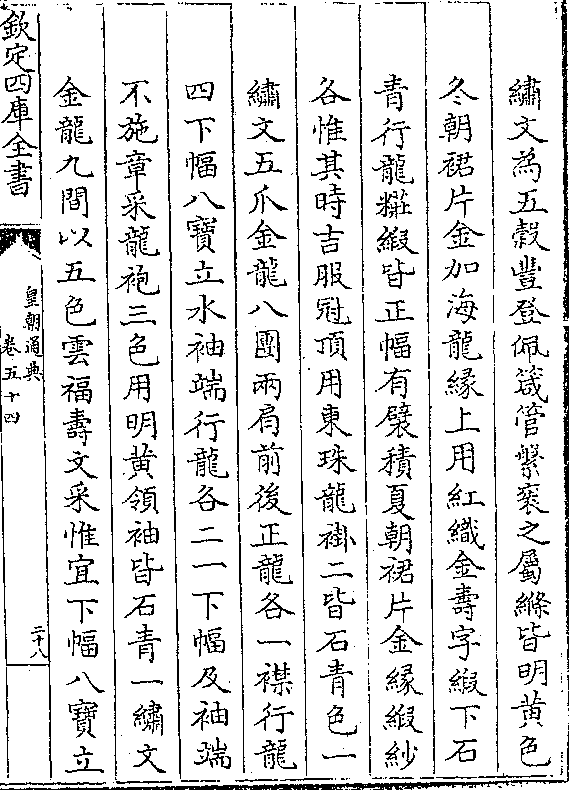 繡文為五穀豐登佩箴管縏袠之屬絛皆明黃色
冬朝裙片金加海龍緣上用紅織金壽字緞下石
青行龍糚緞皆正幅有襞積夏朝裙片金緣緞紗
各惟其時吉服冠頂用東珠龍褂二皆石青色一
繡文五爪金龍八團兩肩前後正龍各一襟行龍
四下幅八寶立水袖端行龍各二一下幅及袖端
不施章采龍袍三色用明黃領袖皆石青一繡文
金龍九間以五色雲福壽文采惟宜下幅八寶立
欽定四庫全書
皇朝通典
卷五十四
二十八